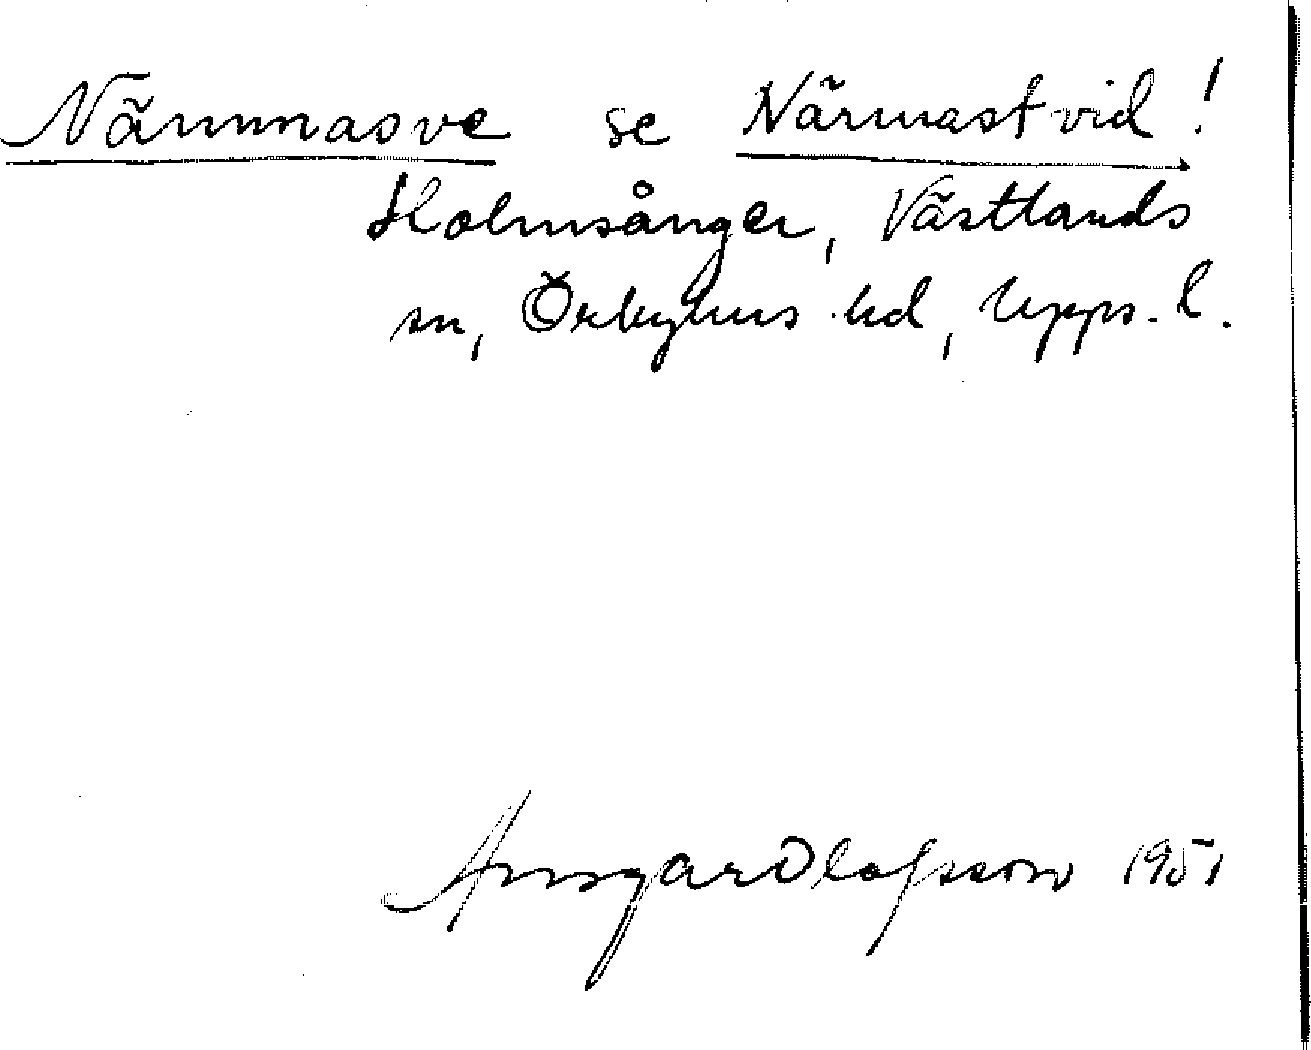 Närmnasve se Närmast vid!
Holmsånger, Västlands
sn, Örbyhus hd, Upps. l.
Ansgar Olafsson 1951